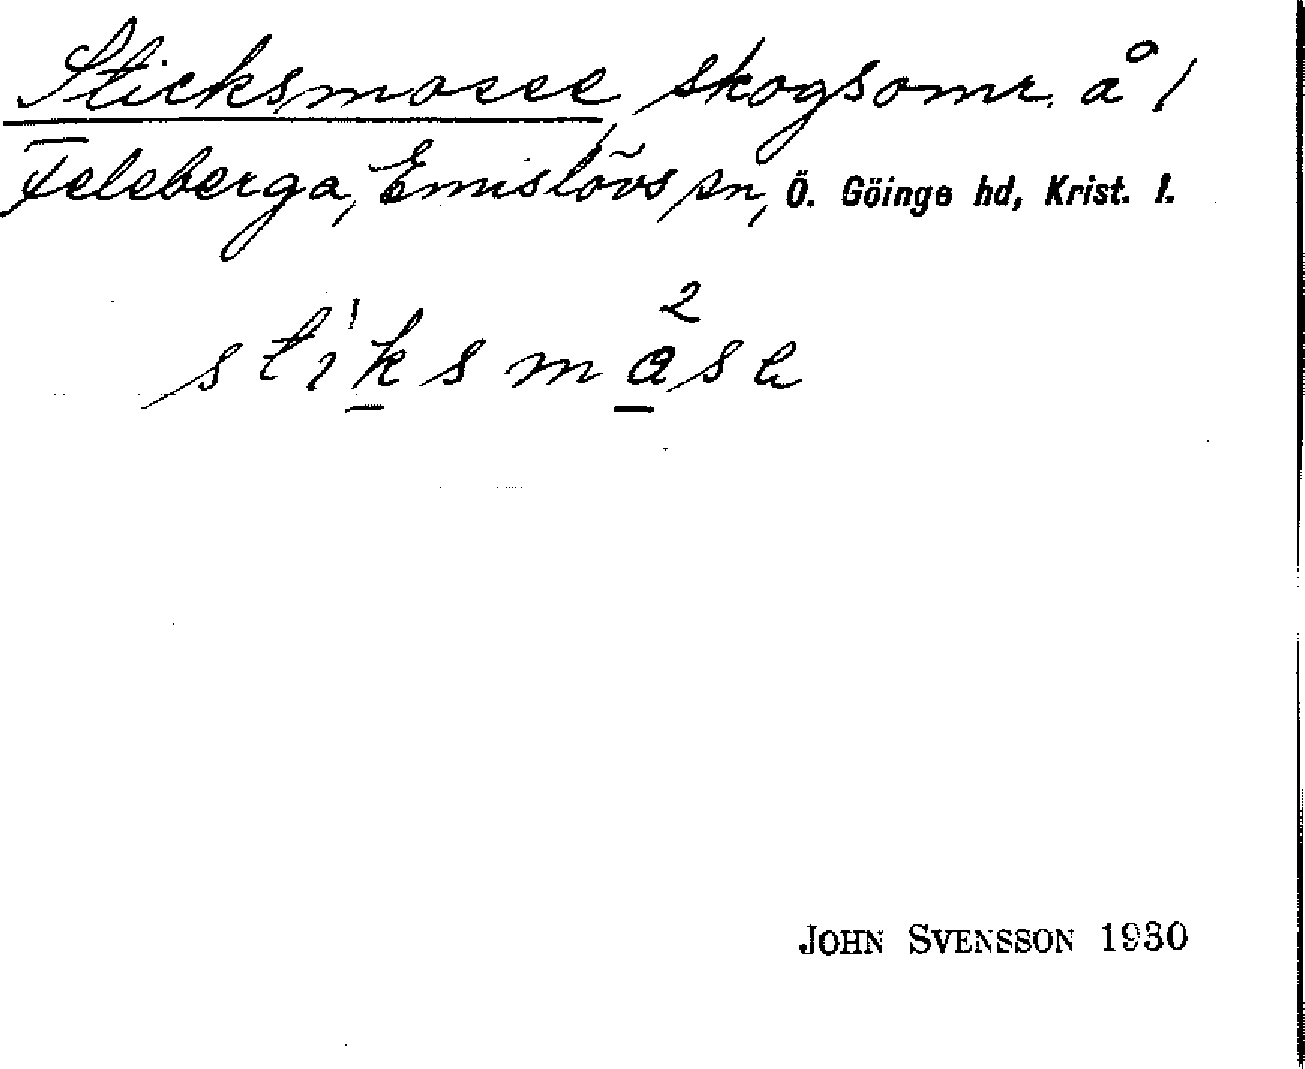 Sticksmosse, skogsomr. å 1
Feleberga, Emislövs sn, Ö. Göinge hd, Krist. l.
sti¹ksmå²se
JOHN SVENSSON 1930